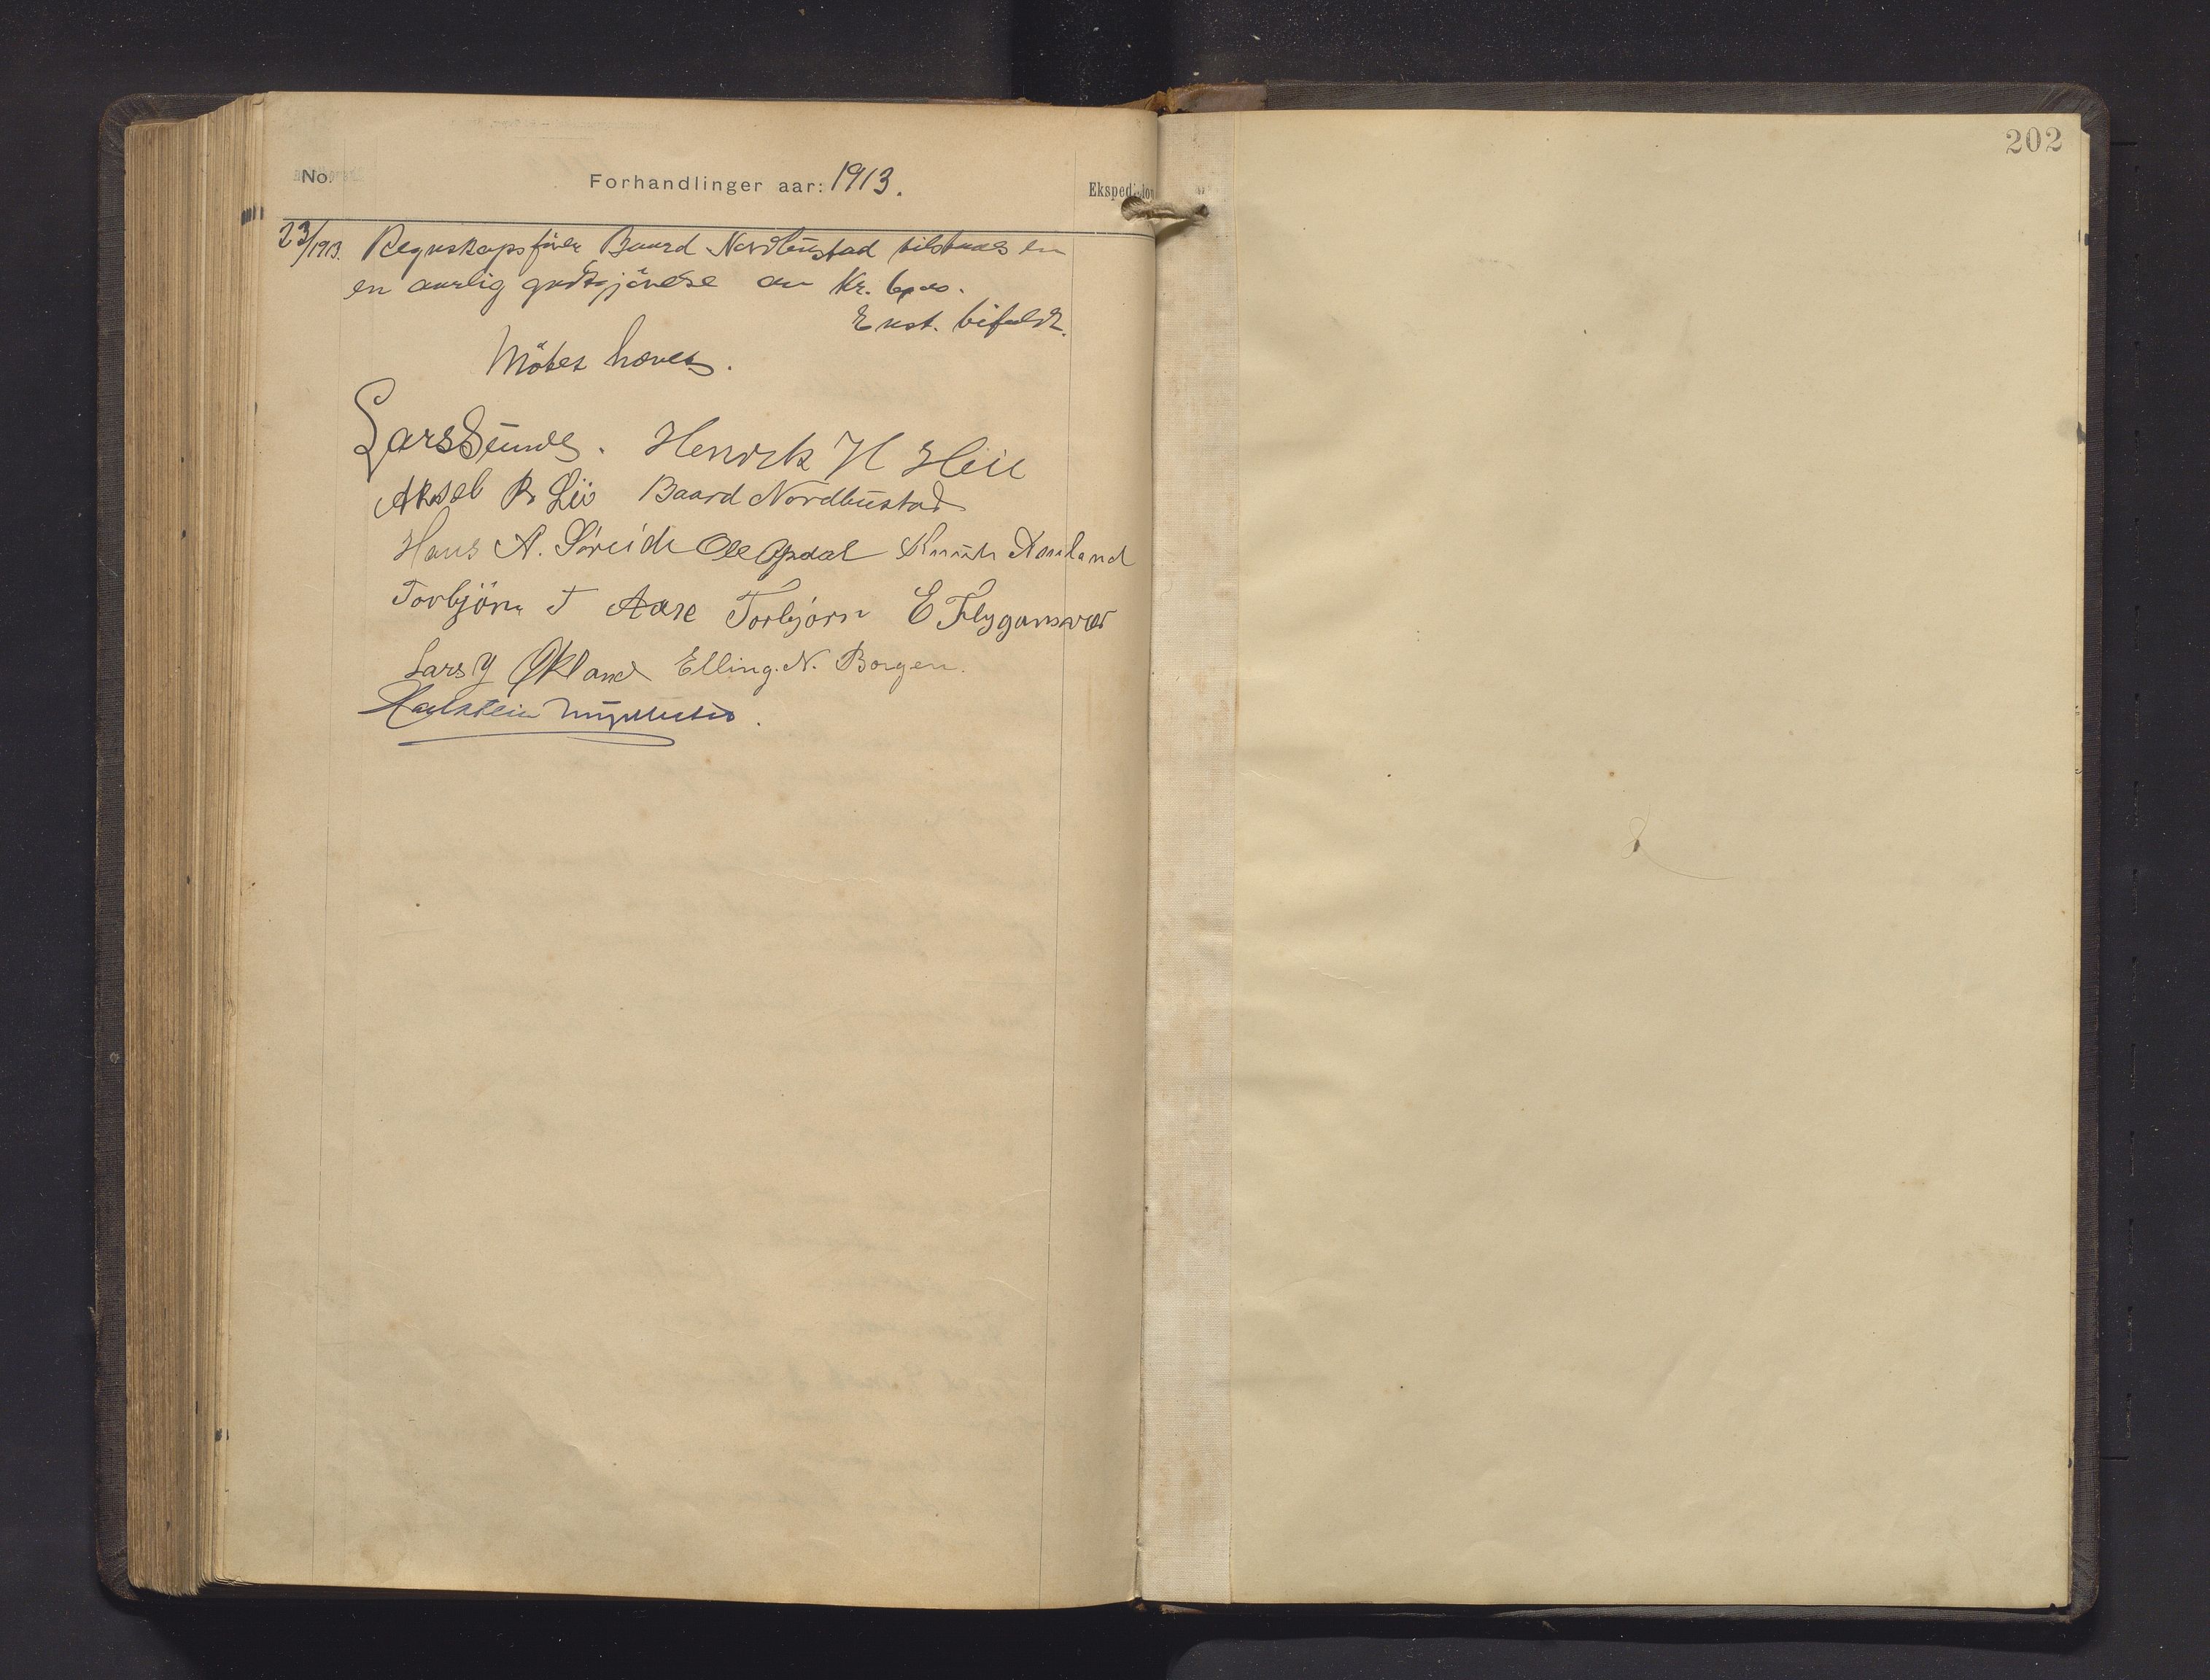 No.
Forhandlinger aar: 1913.
Ekspedition
202
23/1913. Regnskapsfører Baard Nordbustad tilstaaes en
en aarlig godtgjörelse av Kr.
Enst. bifaldt.
Mötet hævet.
Lars Sunde. Henrik H
Aksel Baard Nordbustad
Hans A. Söreide Ole Opdal Knut
Torbjörn T Aase Torbjørn E Flygansvær
Lars Økland Elling. N. Borgen.